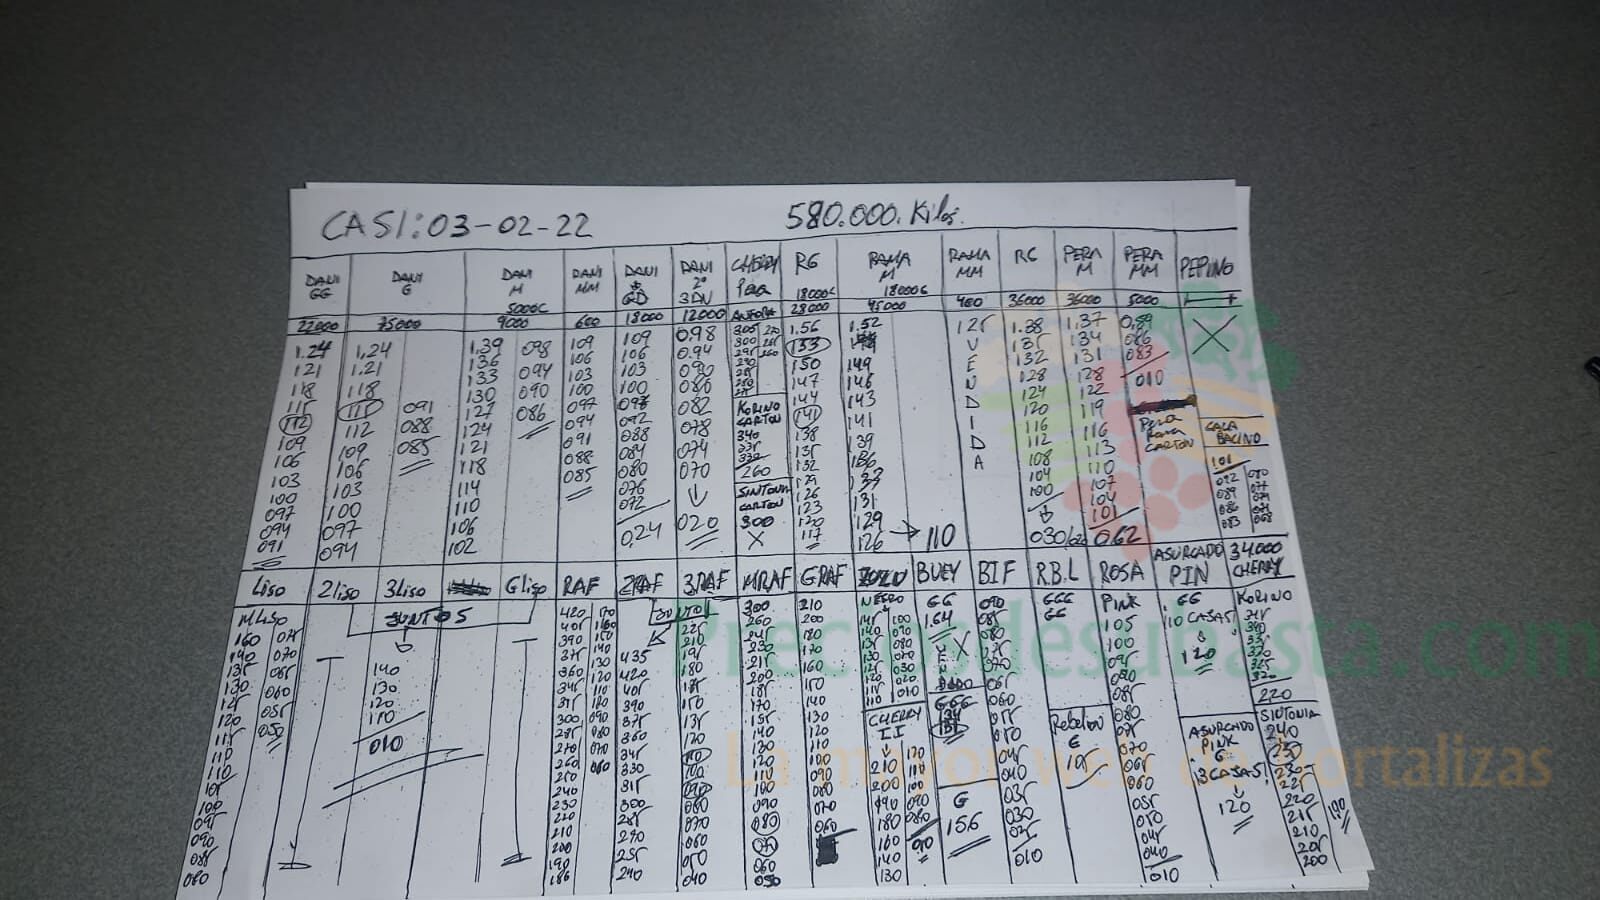 CASI: 03-02-22 580.000. Kilos.
DANI GG DANI G DANI M DANI MM DANI GD DANI 2ª CHERRY Pera RG RAMA M RAMA MM RG PERA M PERA MM PEPINO
5000C 3DN 18000C 18000G
22000 75000 9000 600 18000 12000 ANFORA 28000 45000 400 36000 36000 5000
1.24 1.24 1,39 098 109 109 0.98 305 1.56 1.52 125 1.38 1.37 0,89
121 1.21 136 094 106 106 0.94 300 153 V 135 134 086
118 118 133 090 103 103 090 295 260 150 149 E 132 131 083
115 115 091 130 086 100 100 086 147 146 N 128 128 010
112 112 088 127 097 082 144 143 D 124 122
109 109 085 124 094 092 078 KORINO CARTON 141 141 I 120 119 Pera Rama CARTON CALA BACINO
106 106 121 091 088 074 340 138 139 D 116 116 101
103 103 118 088 084 070 335 135 136 A 112 113 092 080
100 100 114 085 080 260 132 108 110 089 077
097 097 110 076 SINTONIA CARTON 129 131 104 107 086 074
094 094 106 072 300 126 129 100 104 083 068
091 102 0,24 020 X 123 126 110 030 101 062
120
117
Liso 2liso 3liso Gliso RAF 2RAF 3RAF MRAF GRAF BUEY BIF R.B.L ROSA ASURCADO PIN 34.000 CHERRY
MLiso JUNTOS JUNTO NEGRO GG GGG GG PINK GG KORINO
160 075
140 070
135 065
130 060
125 055
120 050
115
110
110
105
100
095
090
085
080
140
130
120
110
010
420 170
405 160
390 150
375 140
360 130
345 120
315 110
300 090
285 080
270 070
260 060
250
240
230
220
210
200
190
186
435
420
405
390
375
360
345
330
315
300
285
270
255
240
225
210
195
180
165
150
135
120
110
100
090
080
070
060
050
040
300
260
245
230
215
200
185
170
155
140
130
120
110
100
090
080
075
060
050
210
200
180
170
160
150
140
130
120
110
100
090
080
070
060
145 100
140 090
135 080
130 070
125 030
120 020
115 010
110
CHERRY II
210
200
190
180
160
140
130
120
110
100
090
080
010
1.64
GGG
134
131
G
156
090
085
080
075
070
065
060
055
045
040
035
030
025
010
Rebelion G
105
105
100
095
090
085
080
075
070
065
060
055
050
045
040
010
110 CAJAS
120
ASURCADO PINK G
13 CAJAS
120
345
340
335
330
325
320
220
SINTONIA
240
235
230
225
220
215
210
205
200
190
Preciosdesubasta.com
La mayor web de hortalizas